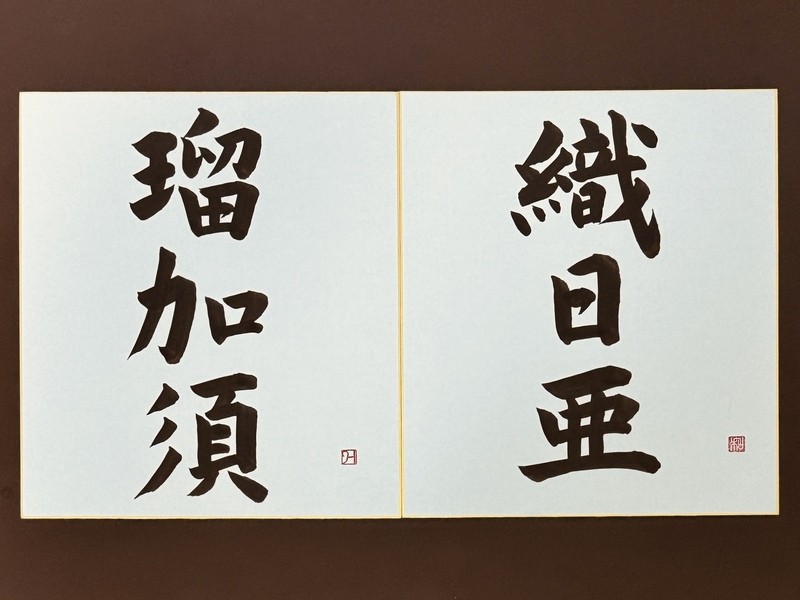 織日亜
瑠加須